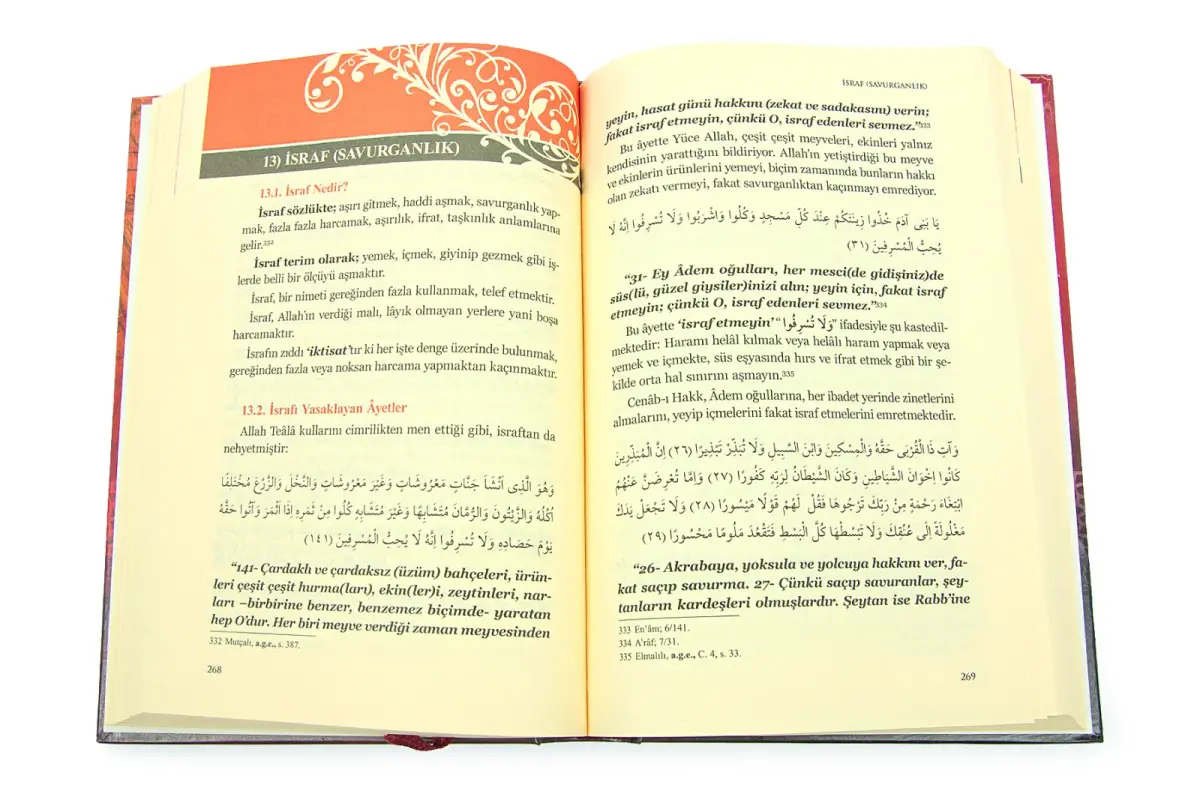 13) İSRAF (SAVURGANLIK)
13.1. İsraf Nedir?
İsraf sözlükte; aşırı gitmek, haddi aşmak, savurganlık yap-
mak, fazla fazla harcamak, aşırılık, ifrat, taşkınlık anlamlarına
gelir.332
İsraf terim olarak; yemek, içmek, giyinip gezmek gibi iş-
lerde belli bir ölçüyü aşmaktır.
İsraf, bir nimeti gereğinden fazla kullanmak, telef etmektir.
İsraf, Allah'ın verdiği malı, lâyık olmayan yerlere yani boşa
harcamaktır.
İsrafın zıddı ‘iktisat’tır ki her işte denge üzerinde bulunmak,
gereğinden fazla veya noksan harcama yapmaktan kaçınmaktır.
13.2. İsrafı Yasaklayan Âyetler
Allah Teâlâ kullarını cimrilikten men ettiği gibi, israftan da
nehyetmiştir:
وَهُوَ الَّذِى اَنْشَاَ جَنَّاتٍ مَعْرُوشَاتٍ وَغَيْرَ مَعْرُوشَاتٍ وَالنَّخْلَ وَالزَّرْعَ مُخْتَلِفًا
اُكُلُهُ وَالزَّيْتُونَ وَالرُّمَّانَ مُتَشَابِهًا وَغَيْرَ مُتَشَابِهٍ كُلُوا مِنْ ثَمَرِهِ اِذَا اَثْمَرَ وَاٰتُوا حَقَّهُ
يَوْمَ حَصَادِهِ وَلَا تُسْرِفُوا اِنَّهُ لَا يُحِبُّ الْمُسْرِفِينَ (١٤١)
“141- Çardaklı ve çardaksız (üzüm) bahçeleri, ürün-
leri çeşit çeşit hurma(ları), ekin(ler)i, zeytinleri, nar-
ları –birbirine benzer, benzemez biçimde- yaratan
hep O’dur. Her biri meyve verdiği zaman meyvesinden
332 Mutçalı, a.g.e., s. 387.
268
İSRAF (SAVURGANLIK)
yeyin, hasat günü hakkını (zekat ve sadakasını) verin;
fakat israf etmeyin, çünkü O, israf edenleri sevmez.”333
Bu âyette Yüce Allah, çeşit çeşit meyveleri, ekinleri yalnız
kendisinin yarattığını bildiriyor. Allah'ın yetiştirdiği bu meyve
ve ekinlerin ürünlerini yemeyi, biçim zamanında bunların hakkı
olan zekatı vermeyi, fakat savurganlıktan kaçınmayı emrediyor.
يَا بَنِى اٰدَمَ خُذُوا زِينَتَكُمْ عِنْدَ كُلِّ مَسْجِدٍ وَكُلُوا وَاشْرَبُوا وَلَا تُسْرِفُوا اِنَّهُ لَا
يُحِبُّ الْمُسْرِفِينَ (٣١)
“31- Ey Âdem oğulları, her mesci(de gidişiniz)de
süs(lü, güzel giysiler)inizi alın; yeyin için, fakat israf
etmeyin; çünkü O, israf edenleri sevmez.”334
Bu âyette ‘israf etmeyin’ “وَلَا تُسْرِفُوا” ifadesiyle şu kastedil-
mektedir: Haramı helâl kılmak veya helâlı haram yapmak veya
yemek ve içmekte, süs eşyasında hırs ve ifrat etmek gibi bir şe-
kilde orta hal sınırını aşmayın.335
Cenâb-ı Hakk, Âdem oğullarına, her ibadet yerinde zinetlerini
almalarını, yeyip içmelerini fakat israf etmelerini emretmektedir.
وَاٰتِ ذَا الْقُرْبَى حَقَّهُ وَالْمِسْكِينَ وَابْنَ السَّبِيلِ وَلَا تُبَذِّرْ تَبْذِيرًا (٢٦) اِنَّ الْمُبَذِّرِينَ
كَانُوا اِخْوَانَ الشَّيَاطِينِ وَكَانَ الشَّيْطَانُ لِرَبِّهِ كَفُورًا (٢٧) وَاِمَّا تُعْرِضَنَّ عَنْهُمُ
ابْتِغَاءَ رَحْمَةٍ مِنْ رَبِّكَ تَرْجُوهَا فَقُلْ لَهُمْ قَوْلًا مَيْسُورًا (٢٨) وَلَا تَجْعَلْ يَدَكَ
مَغْلُولَةً اِلَى عُنُقِكَ وَلَا تَبْسُطْهَا كُلَّ الْبَسْطِ فَتَقْعُدَ مَلُومًا مَحْسُورًا (٢٩)
“26- Akrabaya, yoksula ve yolcuya hakkını ver, fa-
kat saçıp savurma. 27- Çünkü saçıp savuranlar, şey-
tanların kardeşleri olmuşlardır. Şeytan ise Rabb’ine
333 En’âm; 6/141.
334 A’râf; 7/31.
335 Elmalılı, a.g.e., C. 4, s. 33.
269